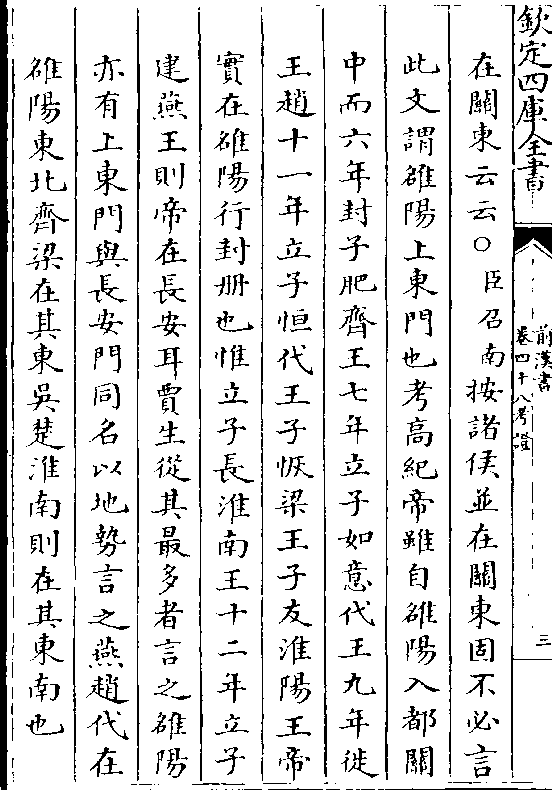 欽定四庫全書
前漢書
卷四十八考證
三
在關東云云○臣召南按諸侯並在關東固不必言
此文謂雒陽上東門也考高紀帝雖自雒陽入都關
中而六年封子肥齊王七年立子如意代王九年徙
王趙十一年立子恒代王子恢梁王子友淮陽王帝
實在雒陽行封册也惟立子長淮南王十二年立子
建燕王則帝在長安耳賈生從其最多者言之雒陽
亦有上東門與長安門同名以地勢言之燕趙代在
雒陽東北齊梁在其東吳楚淮南則在其東南也